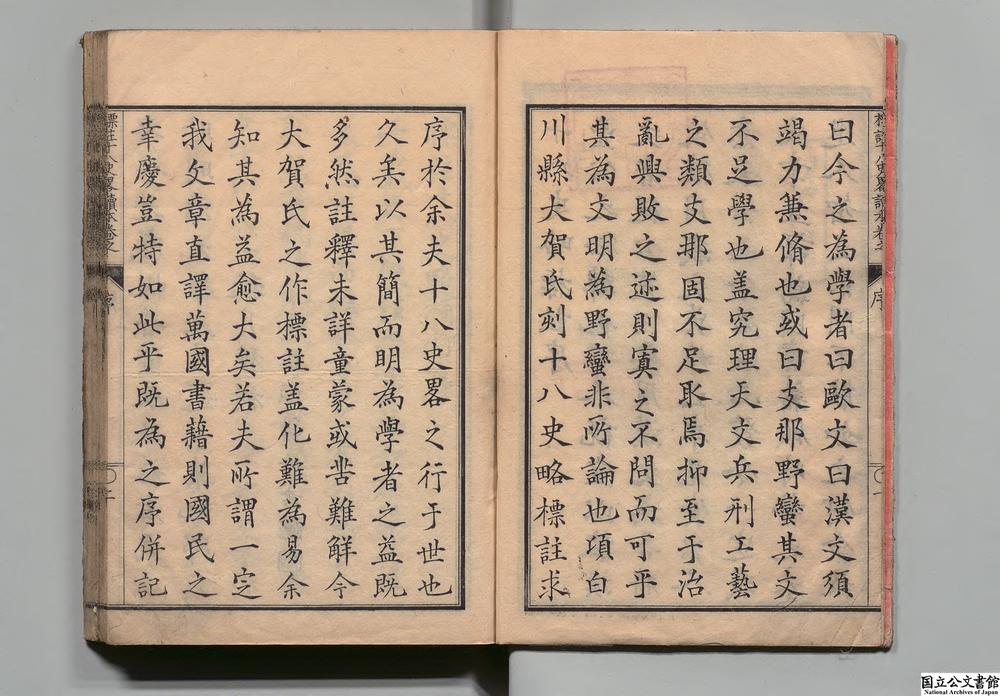 曰今之為學者曰歐文曰漢文須
竭力兼脩也或曰支那野蠻其文
不足學也盖究理天文兵刑工藝
之類支那固不足取焉抑至于治
亂興敗之迹則寘之不問而可乎
其為文明為野蠻非所論也項白
川縣大賀氏刻十八史略標註求
序
序於余夫十八史畧之行于世也
久矣以其簡而明為學者之益既
多然註釋未詳童蒙或苦難解今
大賀氏之作標註盖化難為易余
知其為益愈大矣若夫所謂一定
我文章直譯萬國書藉則國民之
幸慶豈特如此乎既為之序併記
標註十八史畧讀本卷之
序
国立公文書館
National Archives of Japan